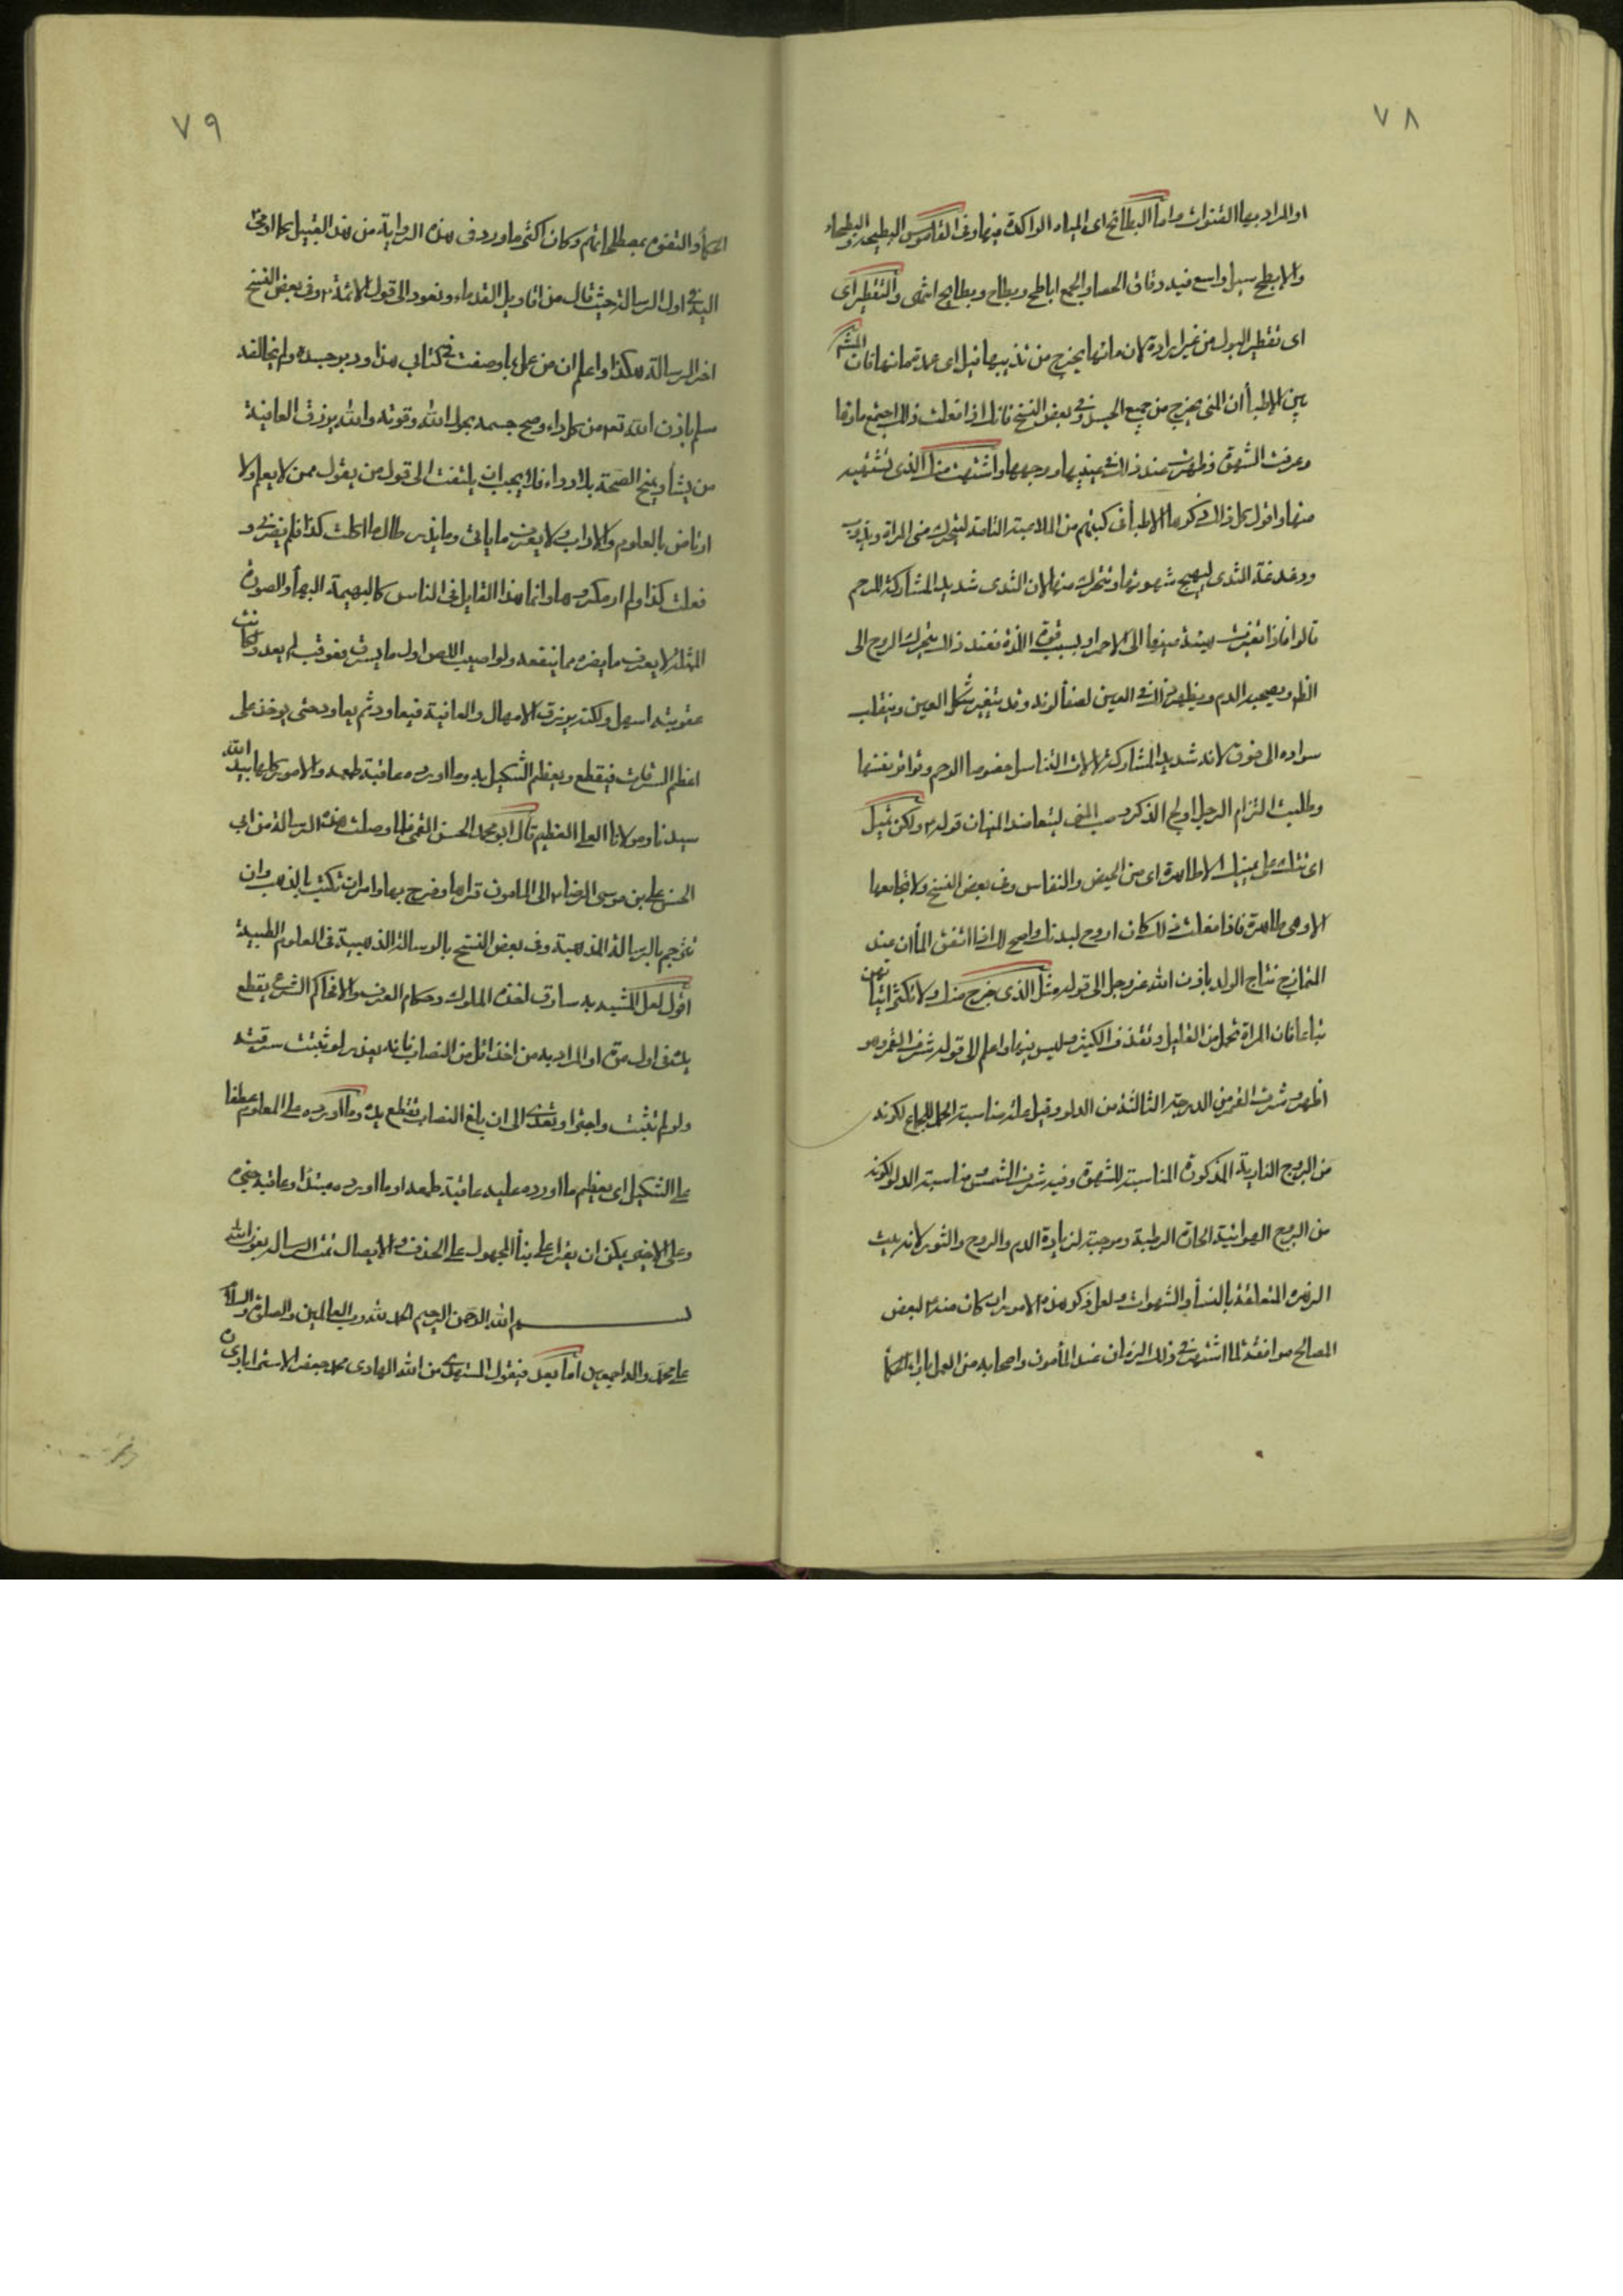 ٧٨
او المراد بها القنوات واما البطائح اى المياه الراكدة فيها وفى القاموس البطيحة والبطحاء
والابطح سيل واسع فيه دقاق الحصا والجمع اباطح وبطاح وبطايح انتهى والتقطير اى
اى تقطير البول من غير ارادة لان مائها يخرج من ثدييها قيل اى عمدة مائها فان المشهور
بين الاطبأ ان المنى يخرج من جميع الجسد وفى بعض النسخ فانك اذا فعلت ذلك اجتمع ماؤها
وعرفت الشهوة وظهرت عند ذلك فى عينيها ووجهها واشتهت منك الذى تشتهيه
منها واقول كل ذلك ذكرها الاطبأ فى كتبهم من الملاعبة التامة ليتحرك منى المراة ويذوب
ودغدغة الثدى ليهيج شهوتها وتتحرك منها لان الثدى شديد المشاركة للرحم
قالوا فاذا تغيرت هيئة عينها الى الاحمرار بسبب قوة اللذة فعند ذلك يتحرك الروح الى
الظاهر ويصحبه الدم ويظهر ذلك فى العين لصفأ لونه وقد يتغير شكل العين وينقلب
سواده الى فوق لانه شديد المشاركة لالات التناسل خصوصا الرحم وتواتر نفسها
وطلبت التزام الرجل اولج الذكر وصب المنى ليتعاضد المنيان قوله ولكن تميل
اى تتك على يمينك الا طاهرة اى من الحيض والنفاس وفى بعض النسخ ولا تجامعها
الا وهى طاهرة فاذا فعلت ذلك كان اروح لبدنك واصح لك اذا اتفق المأان عند
التمازج نتاج الولد باذن الله عز وجل الى قوله مثل الذى خرج منك ولا تكثر اتيانهن
تباعا فان المراة تحمل من القليل وتقذف الكثير وليس فيها واعلم الى قوله شرف القمر وهو
اظهر وشرف القمر من الدرجة الثالثة من الدلو وقيل علة مناسبة الحمل للجماع لكونه
من البروج النارية المذكورة المناسبة للشهوة وفيه شرف الشمس ومناسبة الدلو لكونه
من البروج الهوائية الحارة الرطبة وموجبة لزيادة الدم والروح والثور لانه بيت
الزهرة المتعلقة بالنسأ والشهوات ولعل ذكر هذه الامور ان كان منه لبعض
المصالح موافقة لما اشتهر فى ذلك الزمان عند المأمون واصحابه من العمل باراء الحكمأ
٧٩
الحكمأ والتفوه بمصطلحاتهم وكان اكثر ما ورد فى هذه الرواية من هذا القبيل كما اومى
اليه فى اول الرسالة حيث قال من اقاويل القدماء ونعود الى قول الائمة وفى بعض النسخ
اخر الرسالة هكذا واعلم ان من عمل بما وصفت فى كتابى هذا ودبر جسده ولم يخالفه
سلم باذن الله تعالى من كل داء وصح جسمه بحول الله وقوته والله يرزق العافية
من يشأ ويمنح الصحة بلا دواء فلا يجب ان يلتفت الى قول من يقول ممن لا يعلم ولا
ارتاض بالعلوم والاداب ولا يعرف ما ياتى وما يذر طال ما اكلت كذا فلم يضرنى و
فعلت كذا ولم ار مكروها وانما هذا القايل فى الناس كالبهيمة البهمأ والصورة
الممثلة لا يعرف ما يضره مما ينفعه ولو اصيب اللص اول ما يسرق فعوقب لم يعد ولكانت
عقوبته اسهل ولكنه يرزق الامهال والعافية فيعاود ثم يعاود حتى يوخذ على
اعظم السرقات فيقطع ويعظم التنكيل به وما اورده عاقبة طمعه والامور كلها بيد الله
سيدنا ومولانا العلى العظيم قال ابو محمد الحسن القمى فلما وصلت هذه الرسالة من ابى
الحسن على بن موسى الرضا الى المامون قراها وفرح بها وامر ان تكتب بالذهب وان
تترجم بالرسالة المذهبة وفى بعض النسخ بالرسالة الذهبية فى العلوم الطبية
اقول لعل المشبه به سارق لغذه الملوك وحكام العرف والا فحاكم الشرع يقطع
يده فى اول مرة او المراد به من اخذ اقل من النصاب فانه يعزر لو ثبتت سرقته
ولو لم تثبت واجترا وتعدى الى ان بلغ النصاب تقطع يده وما اورده على المعلوم عطفا
على التنكيل اى يعظم ما اورده عليه عاقبة طمعه او ما اورده مبتدأ وعاقبة خبره
وعلى الاخير يمكن ان يقرا على بنأ المجهول على الحذف والايصال تمت الرسالة بعون الله
بسم الله الرحمن الرحيم الحمد لله رب العالمين والصلوة والسلام
على محمد واله اجمعين اما بعد فيقول المستهدى من الله الهادى محمد جعفر الاسترابادى